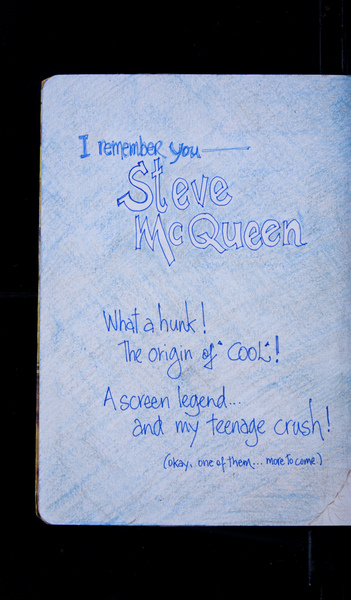 I remember you—
Steve
McQueen
What a hunk!
The origin of "COOL"!
A screen legend...
and my teenage crush!
(okay, one of them... more to come.)